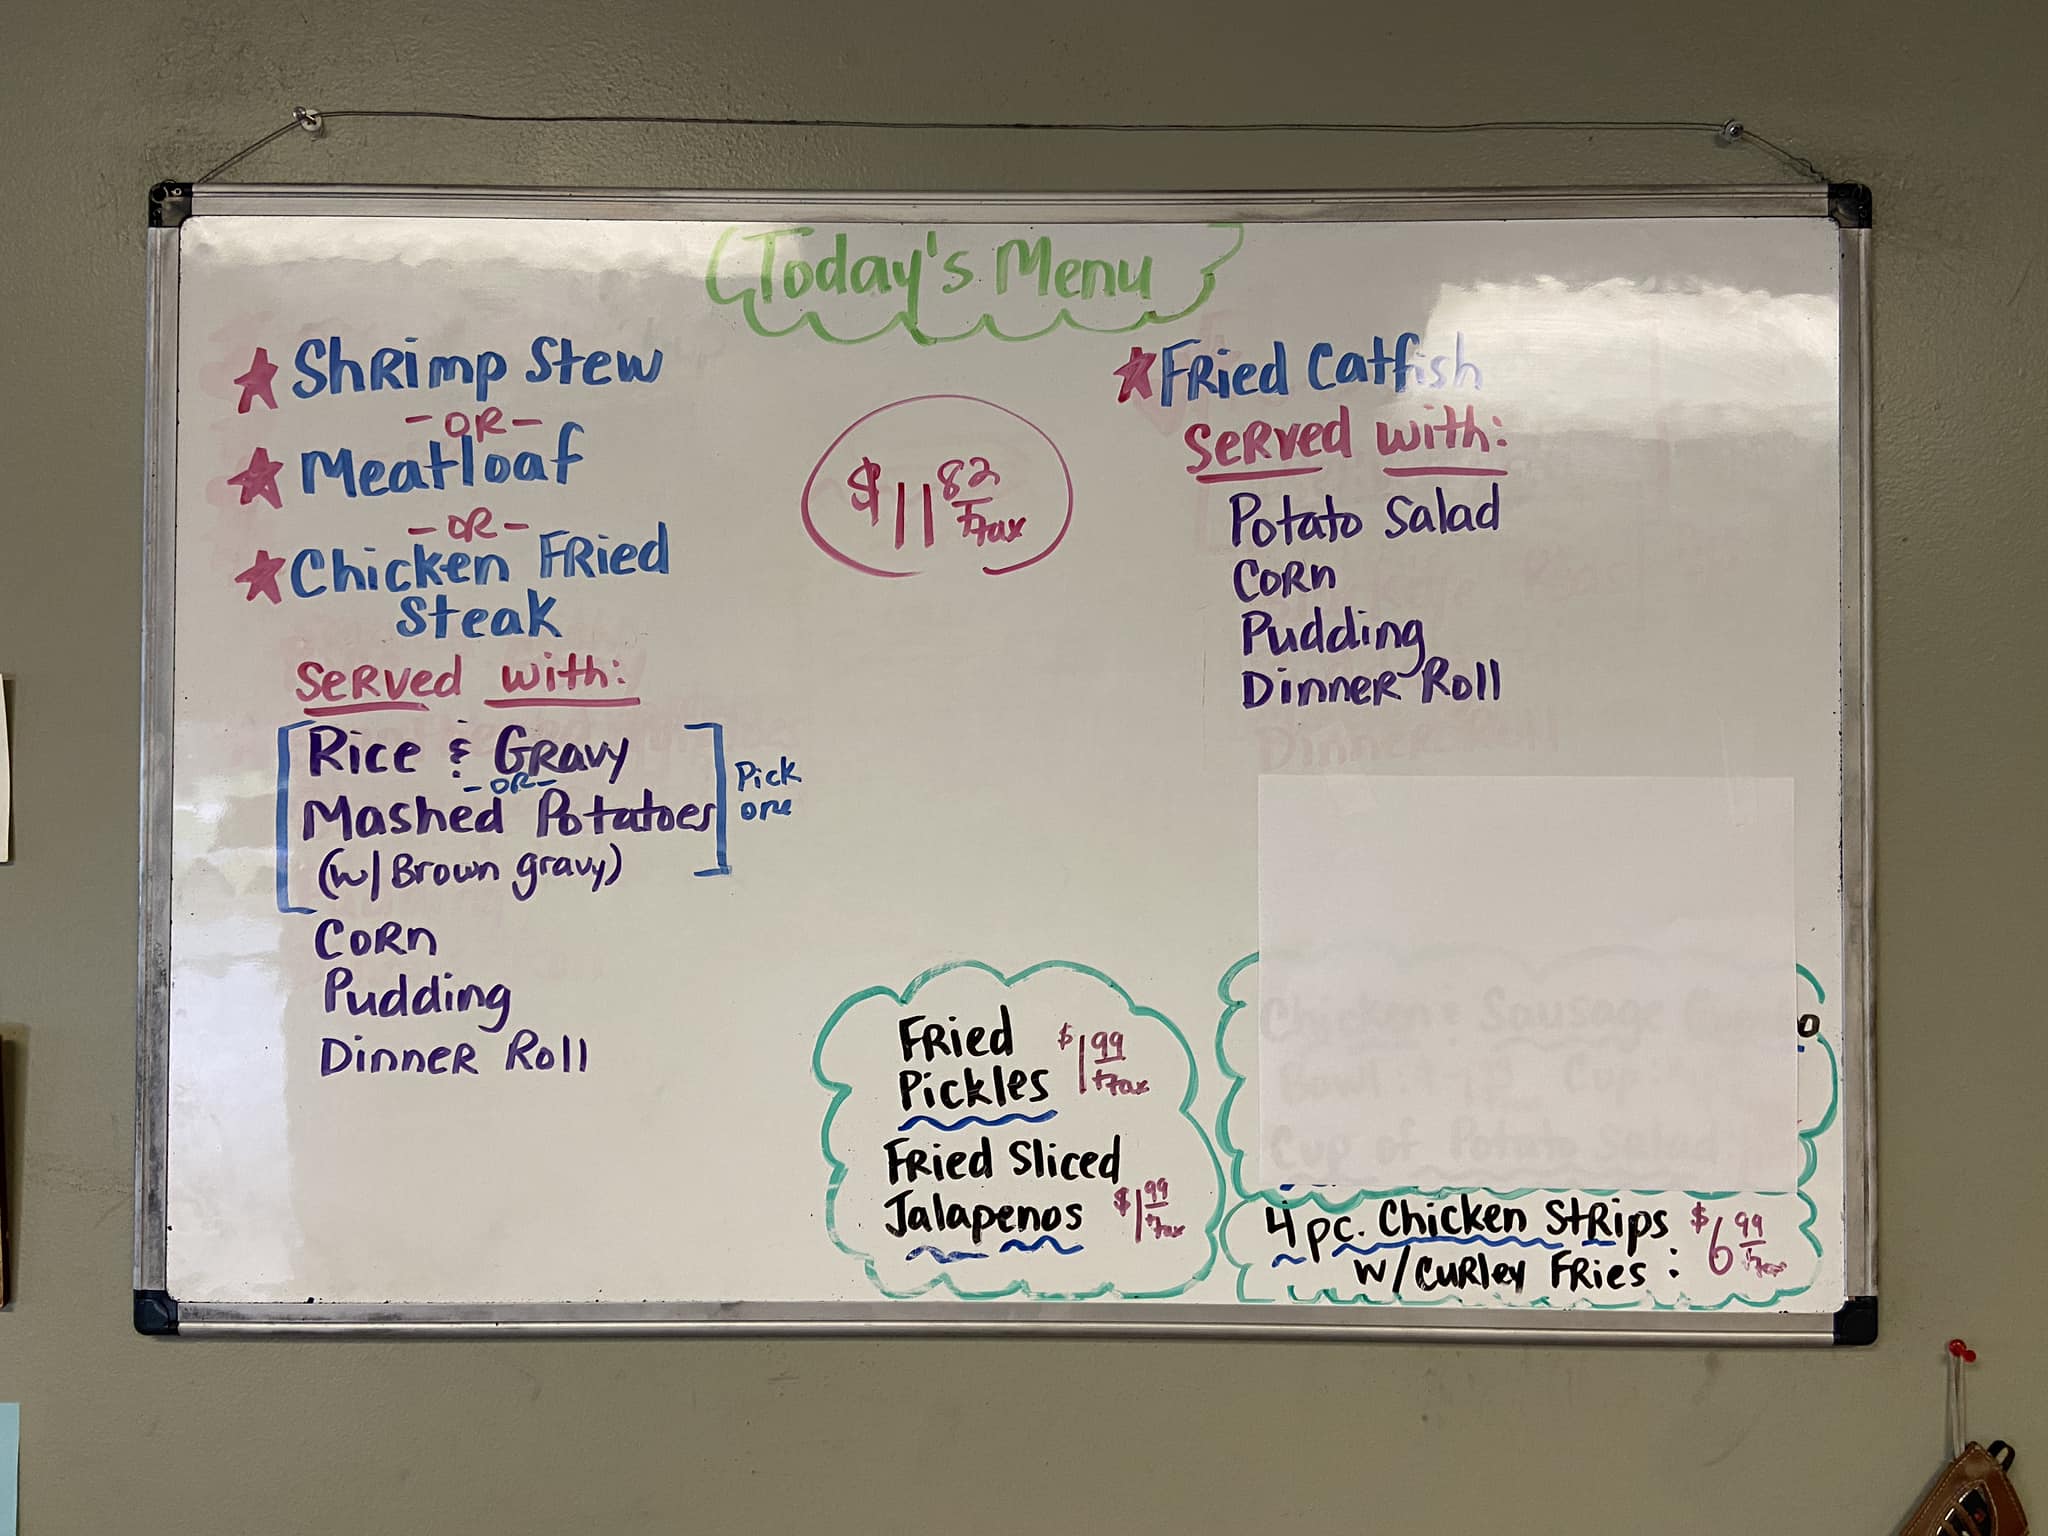 Today's Menu
Shrimp Stew
- OR -
Meatloaf
- OR -
Chicken Fried
Steak
Served with:
Rice & Gravy
- OR -
Mashed Potatoes
(w/ Brown gravy)
Pick
one
Corn
Pudding
Dinner Roll
$11 82
+tax
Fried Catfish
Served with:
Potato Salad
Corn
Pudding
Dinner Roll
Dinner Roll
Fried
Pickles
$1 99
+tax
Fried Sliced
Jalapenos
$1 99
+tax
Chicken & Sausage
Bowl
Cup of Potato Salad
4 pc. Chicken Strips
w/ Curley Fries:
$6 99
+tax